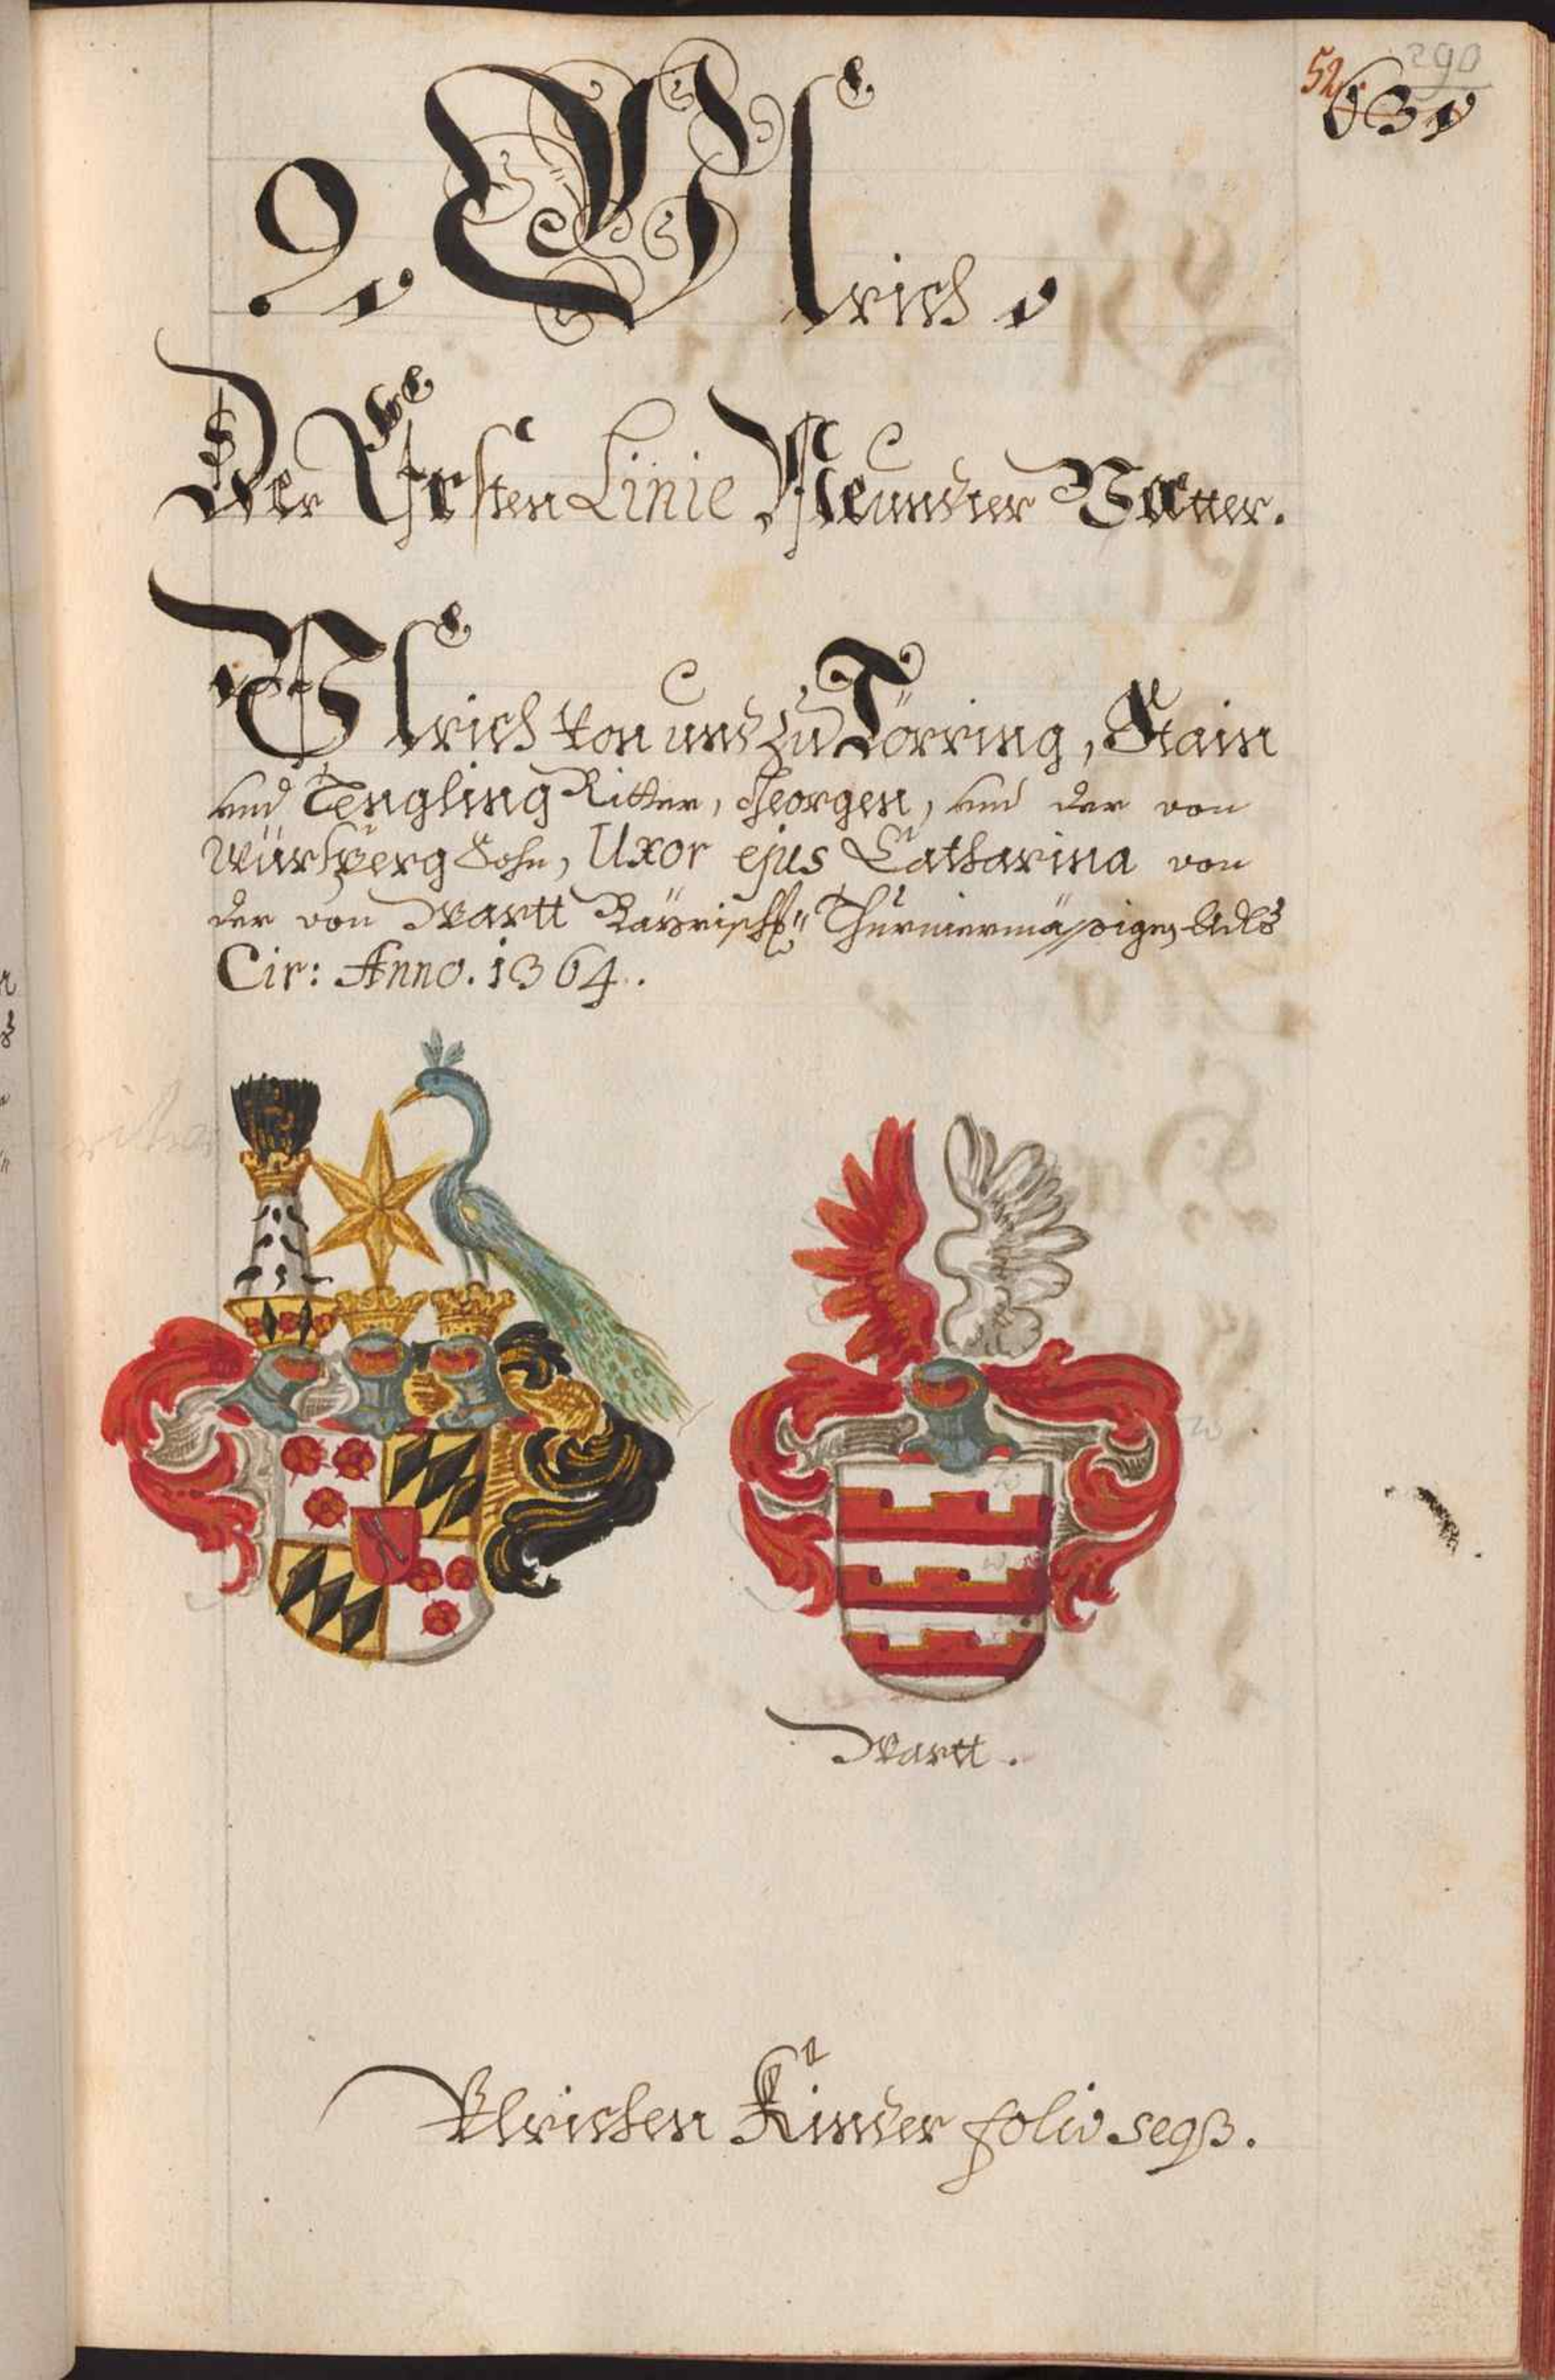 290
52.
631
9. Ulrich.
Der Ersten Linie Neundter Vatter.
Ulrich von und zu Törring, Stain
und Tengling Ritter, Georgen, und der von
Würsperg Sohn, Uxor ejus Catharina von
der von Wartt Bayrisch Thurniermäßigen Adls
Cir: Anno. 1364.
Wartt.
Ulrichen Kinder folio seqß.